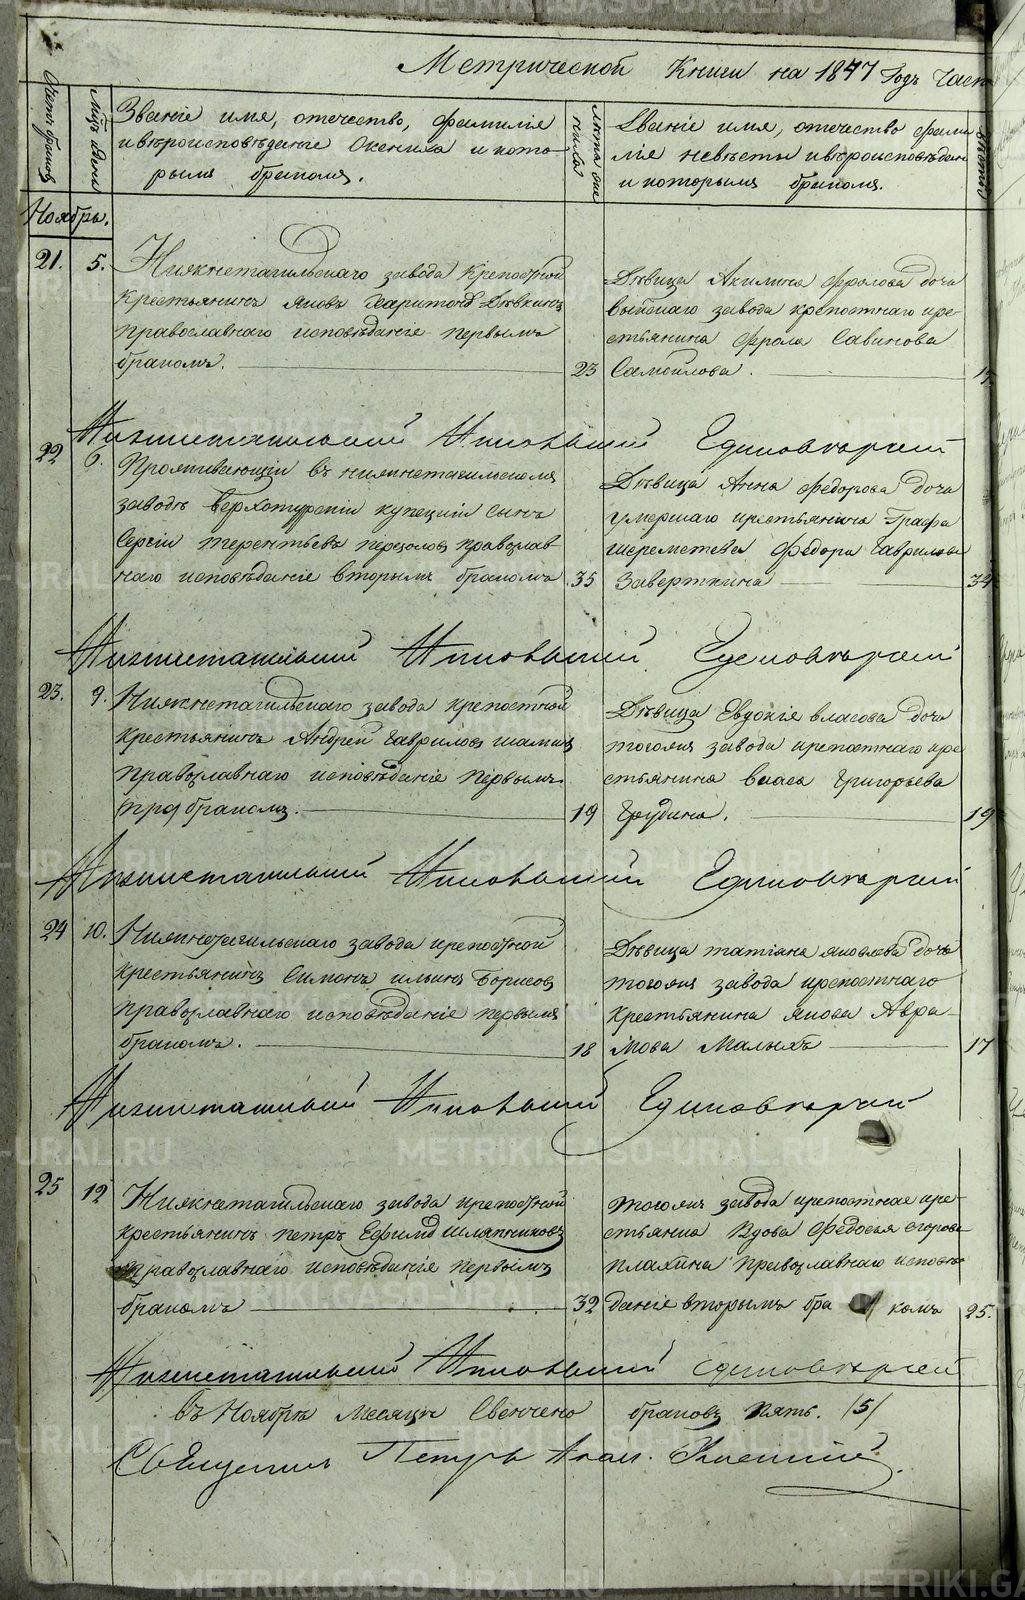 Метрической Книги на 1847 Годъ Часть
Счетъ браковъ
Мцъ и день
Званіе имя, отечество, фамилія
и вѣроисповѣданіе Жениха и кото-
рымъ бракомъ.
Лѣта жениха
Званіе имя, отечество фами
лія невѣсты и вѣроисповѣдан
и которымъ бракомъ.
Ноябрь.
21. 5. Нижнетагильскаго завода Крепостной
крестьянинъ Яковъ Харитоновъ Дѣвкинъ
православнаго исповѣданіе первымъ
бракомъ. 23
Дѣвица Акилина Фролова дочь
выйскаго завода крепостнаго кре-
стьянина Фрола Савинова
Самойлова.
Единовѣрчей
22 6. Проживающій въ нижнетагильскомъ
заводѣ верхотурскій купецкій сынъ
Сергій терентьевъ православ
наго исповѣданіе вторымъ бракомъ 35
Дѣвица Анна Федорова дочь
умершаго крестьянина Графа
шереметева Федора Гаврилова
Заверткина 34
Единовѣрчей
23. 9. Нижнетагильскаго завода крепостной
крестьянинъ Андрей Гавриловъ шаминъ
православнаго исповѣданіе первымъ
бракомъ. 19
Дѣвица Евдокія власова дочь
тогожъ завода крепостнаго кре
стьянина власа Григорьева
Грудина. 19
Единовѣрчей
24 10. Нижнетагильскаго завода крепостной
крестьянинъ Симонъ ильинъ Борисовъ
православнаго исповѣданіе первымъ
бракомъ. 18
Дѣвица татіана яковлева дочь
тогожъ завода крепостнаго
крестьянина якова Авра-
мова Малыхъ 17
Единовѣрчей
25 12 Нижнетагильскаго завода крепостной
крестьянинъ петръ Ефимовъ шляпниковъ
православнаго исповѣданіе первымъ
бракомъ 32
тогожъ завода крепостная кре-
стьянка Вдова Федосья егорова
плахина православнаго исповѣ
даніе вторымъ бра комъ 25.
единовѣрчей
въ Ноябрѣ месяцѣ Свенчено браковъ пять. /5/
Священникъ Петръ
METRIKI.GASO-URAL.RU